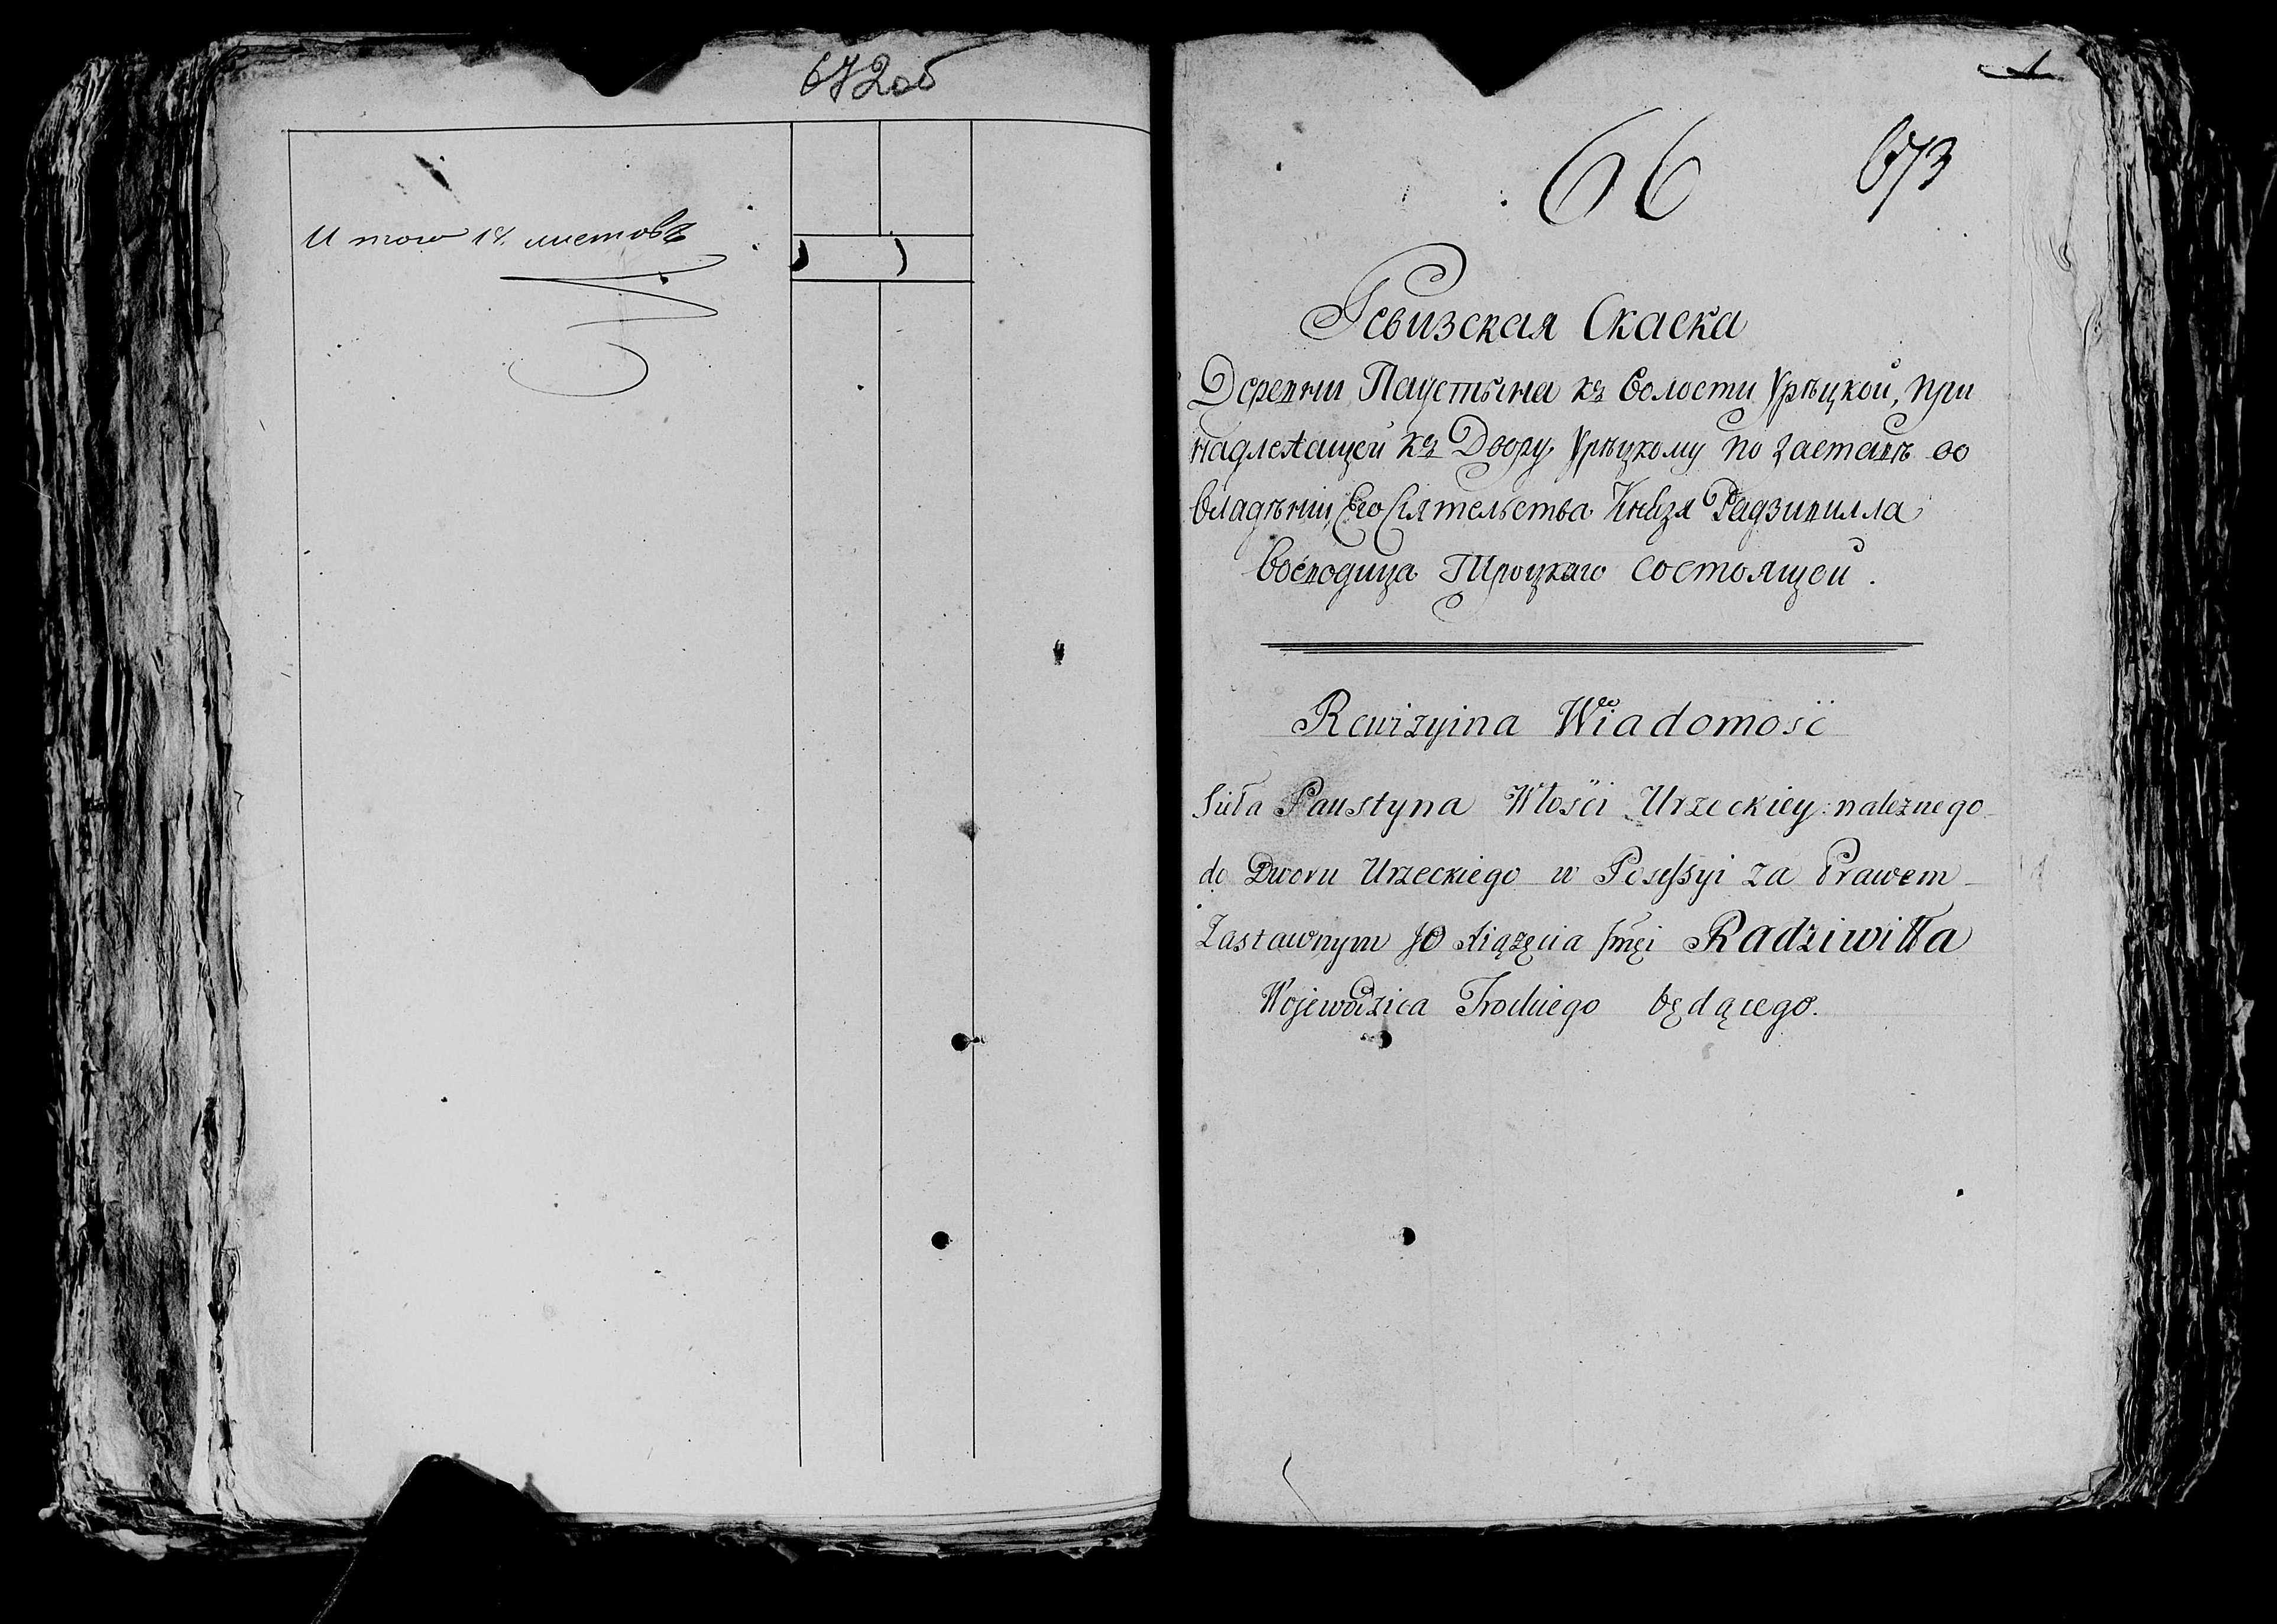 672об
И того 18. листовъ
1
66
673
Ревизская Скаска
Деревни Паустына къ Волости Урѣцкой, при
надлежащей къ Двору Урѣцкому по заставѣ во
владѣнии Его Сіятельства Князя Радзивилла
Воеводица Троцкаго состоящей.
Rewizyina Wiadomość
Sieła Paustyna Włości Urzeckiey należnego
do Dworu Urzeckiego w Possessyi za Prawem
Zastawnym JO Xiążęcia Jmći Radziwiłła
Wojewodzica Trockiego będącego.